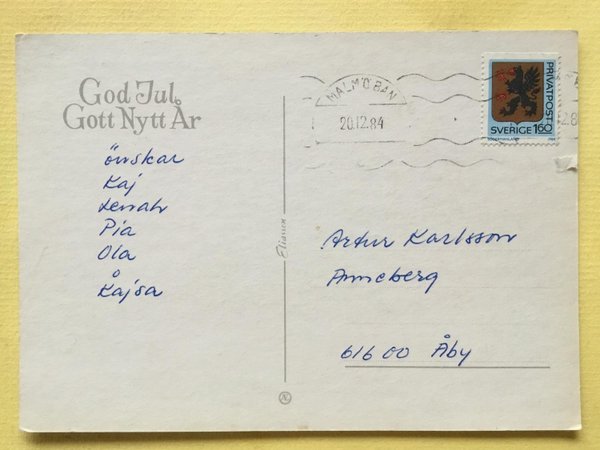 God Jul
Gott Nytt År
önskar
Kaj
Lenah
Pia
Ola
Å
Kajsa
Eliasson
MALMÖ BAN
20.12.84
PRIVATPOST
SVERIGE 160
Artur Karlsson
Anneberg
616 00 Åby